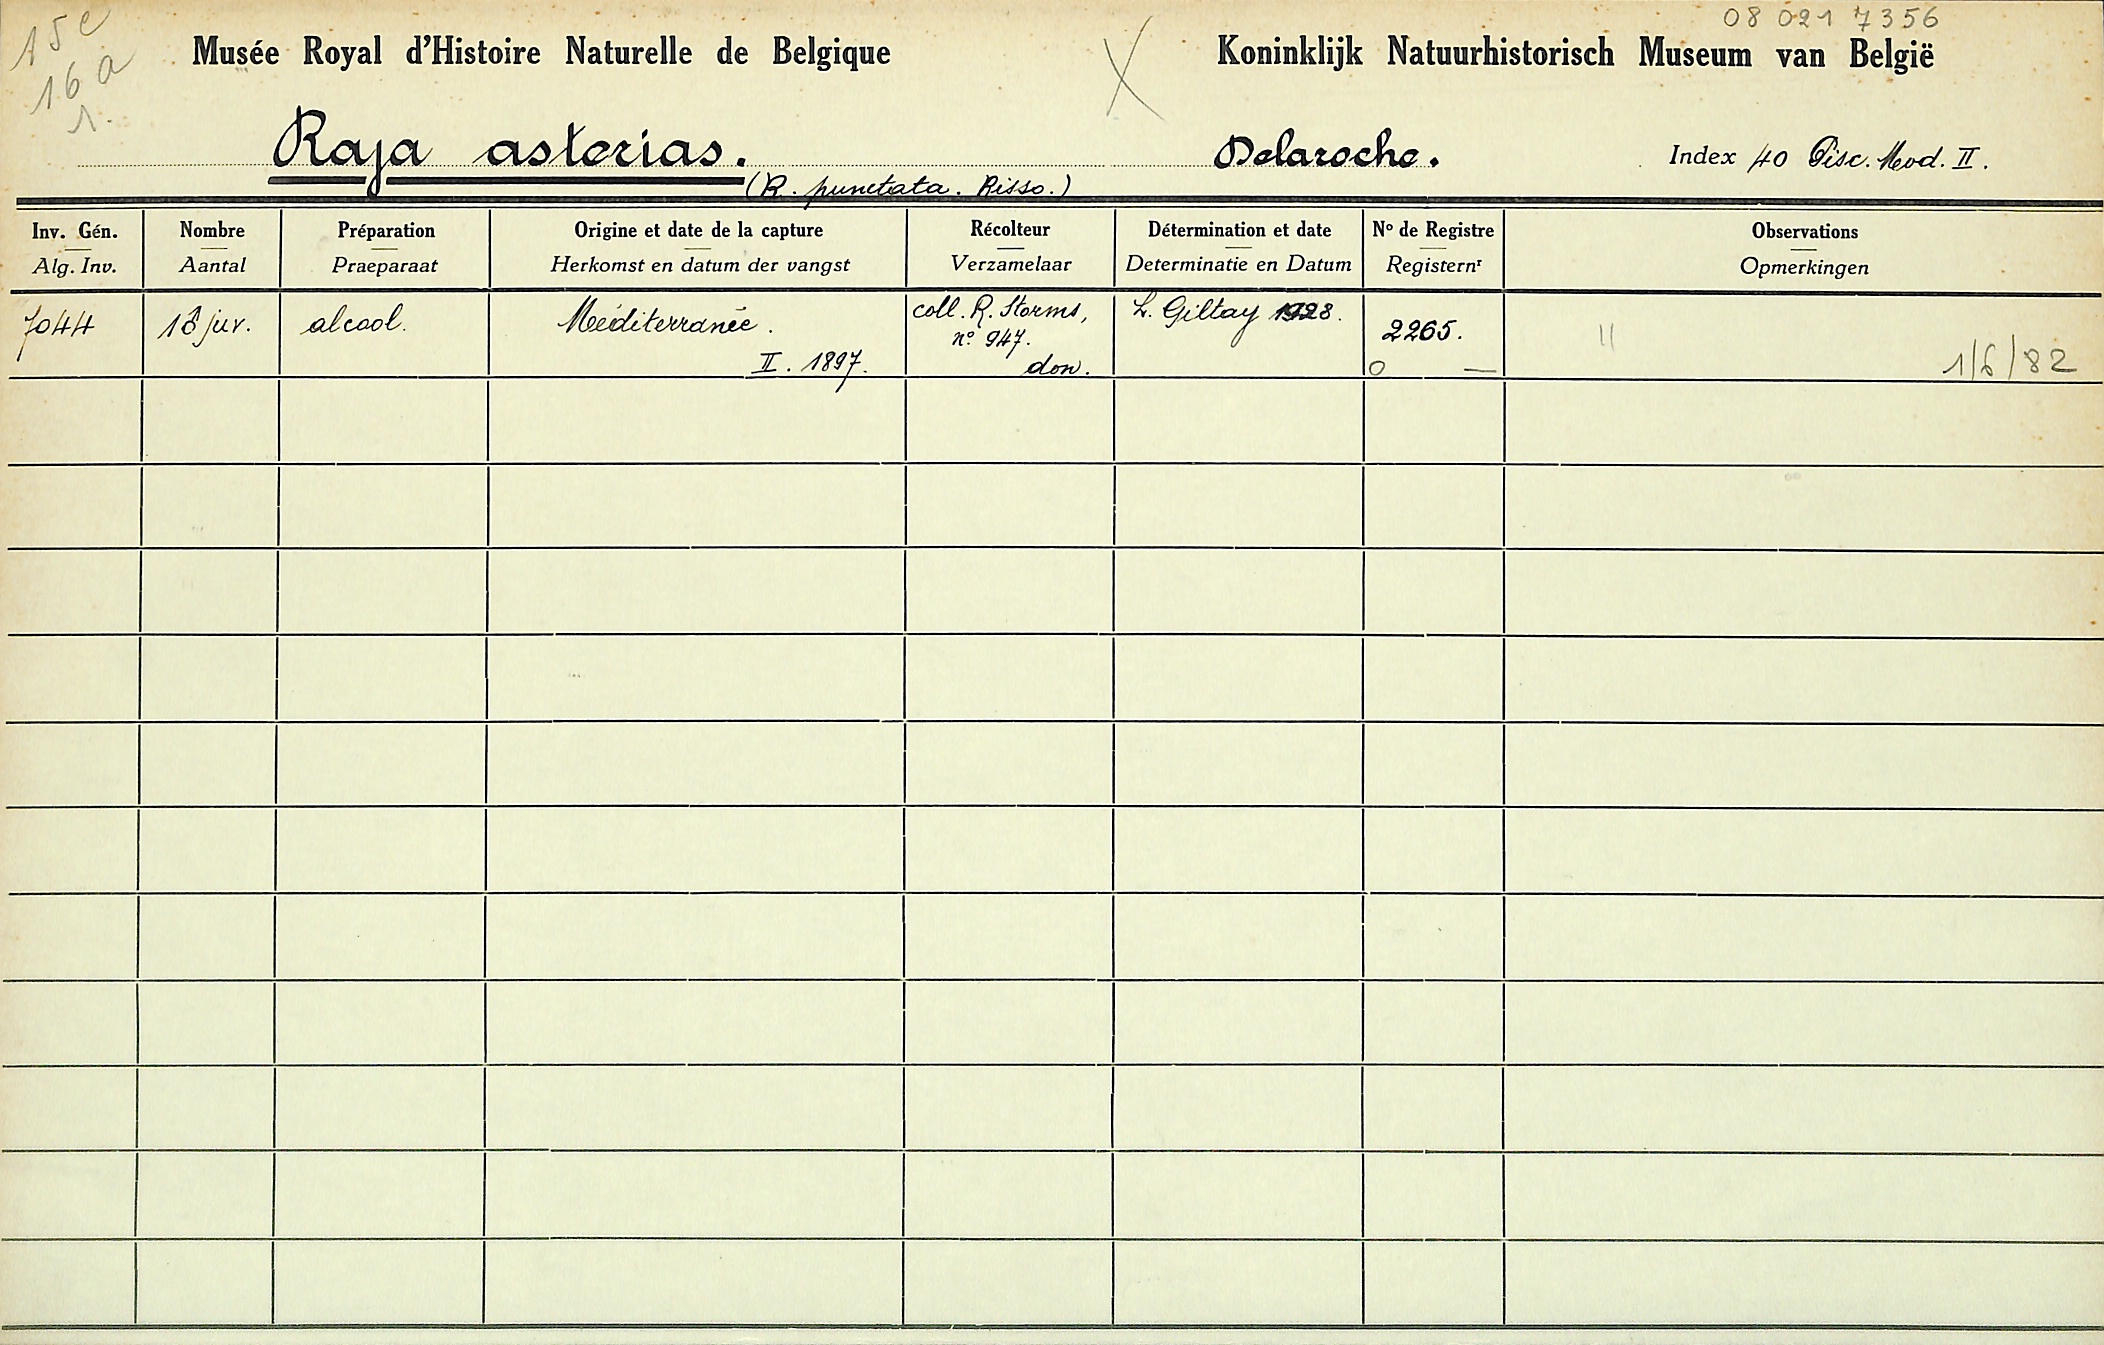 15c
16a
1.
08 021 7356
Musée Royal d'Histoire Naturelle de Belgique
Koninklijk Natuurhistorisch Museum van België
Raja asterias. Delaroche. Index 40 Pisc. Mod. II.
(R. punctata. Risso.)
Inv. Gén. Nombre Préparation Origine et date de la capture Récolteur Détermination et date Nº de Registre Observations
Alg. Inv. Aantal Praeparaat Herkomst en datum der vangst Verzamelaar Determinatie en Datum Registernr Opmerkingen
7044 1♂ juv. alcool. Méditerranée. coll. R. Storms, L. Giltay 1928. 2265. 11
nº 947.
II. 1897. don. 0 — 1/6/82